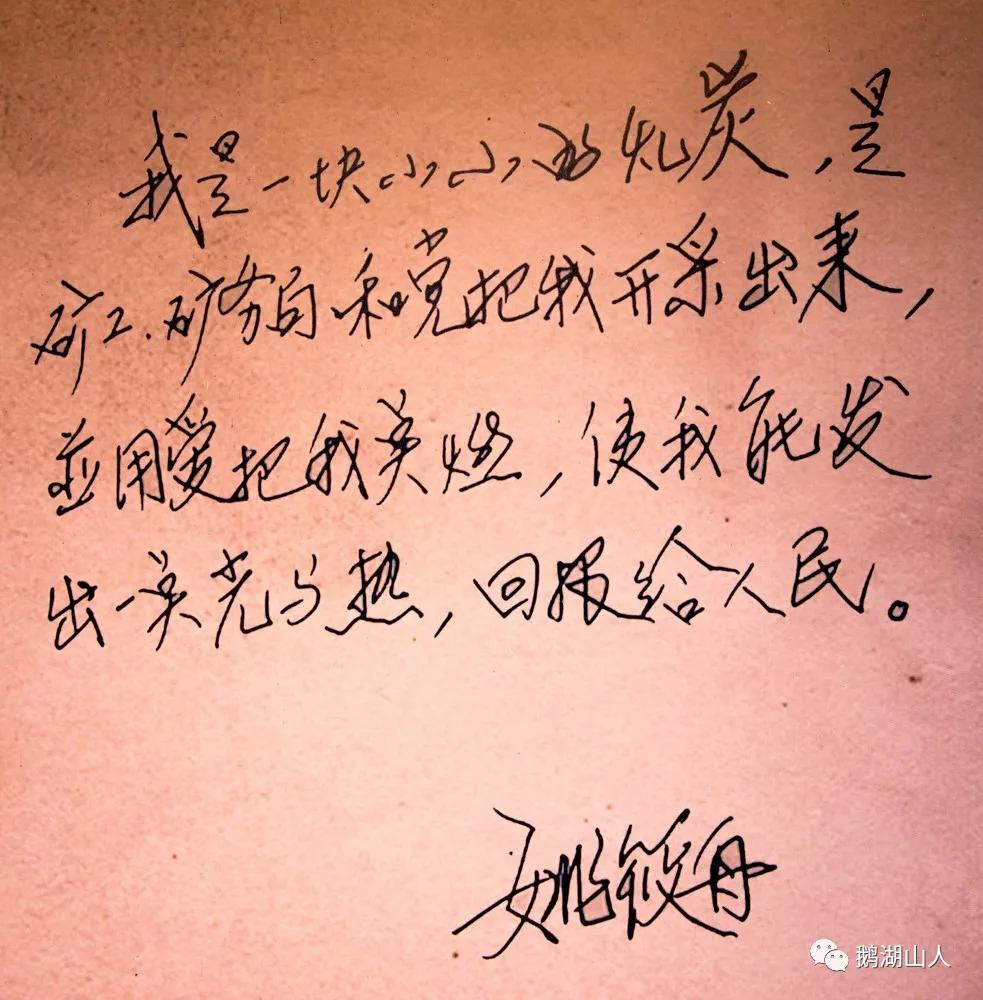 我是一块小小的煤炭，是
矿工、矿务局和党把我开采出来，
並用爱把我点燃，使我能发
出一点光与热，回报给人民。
姚筱舟
鹅湖山人